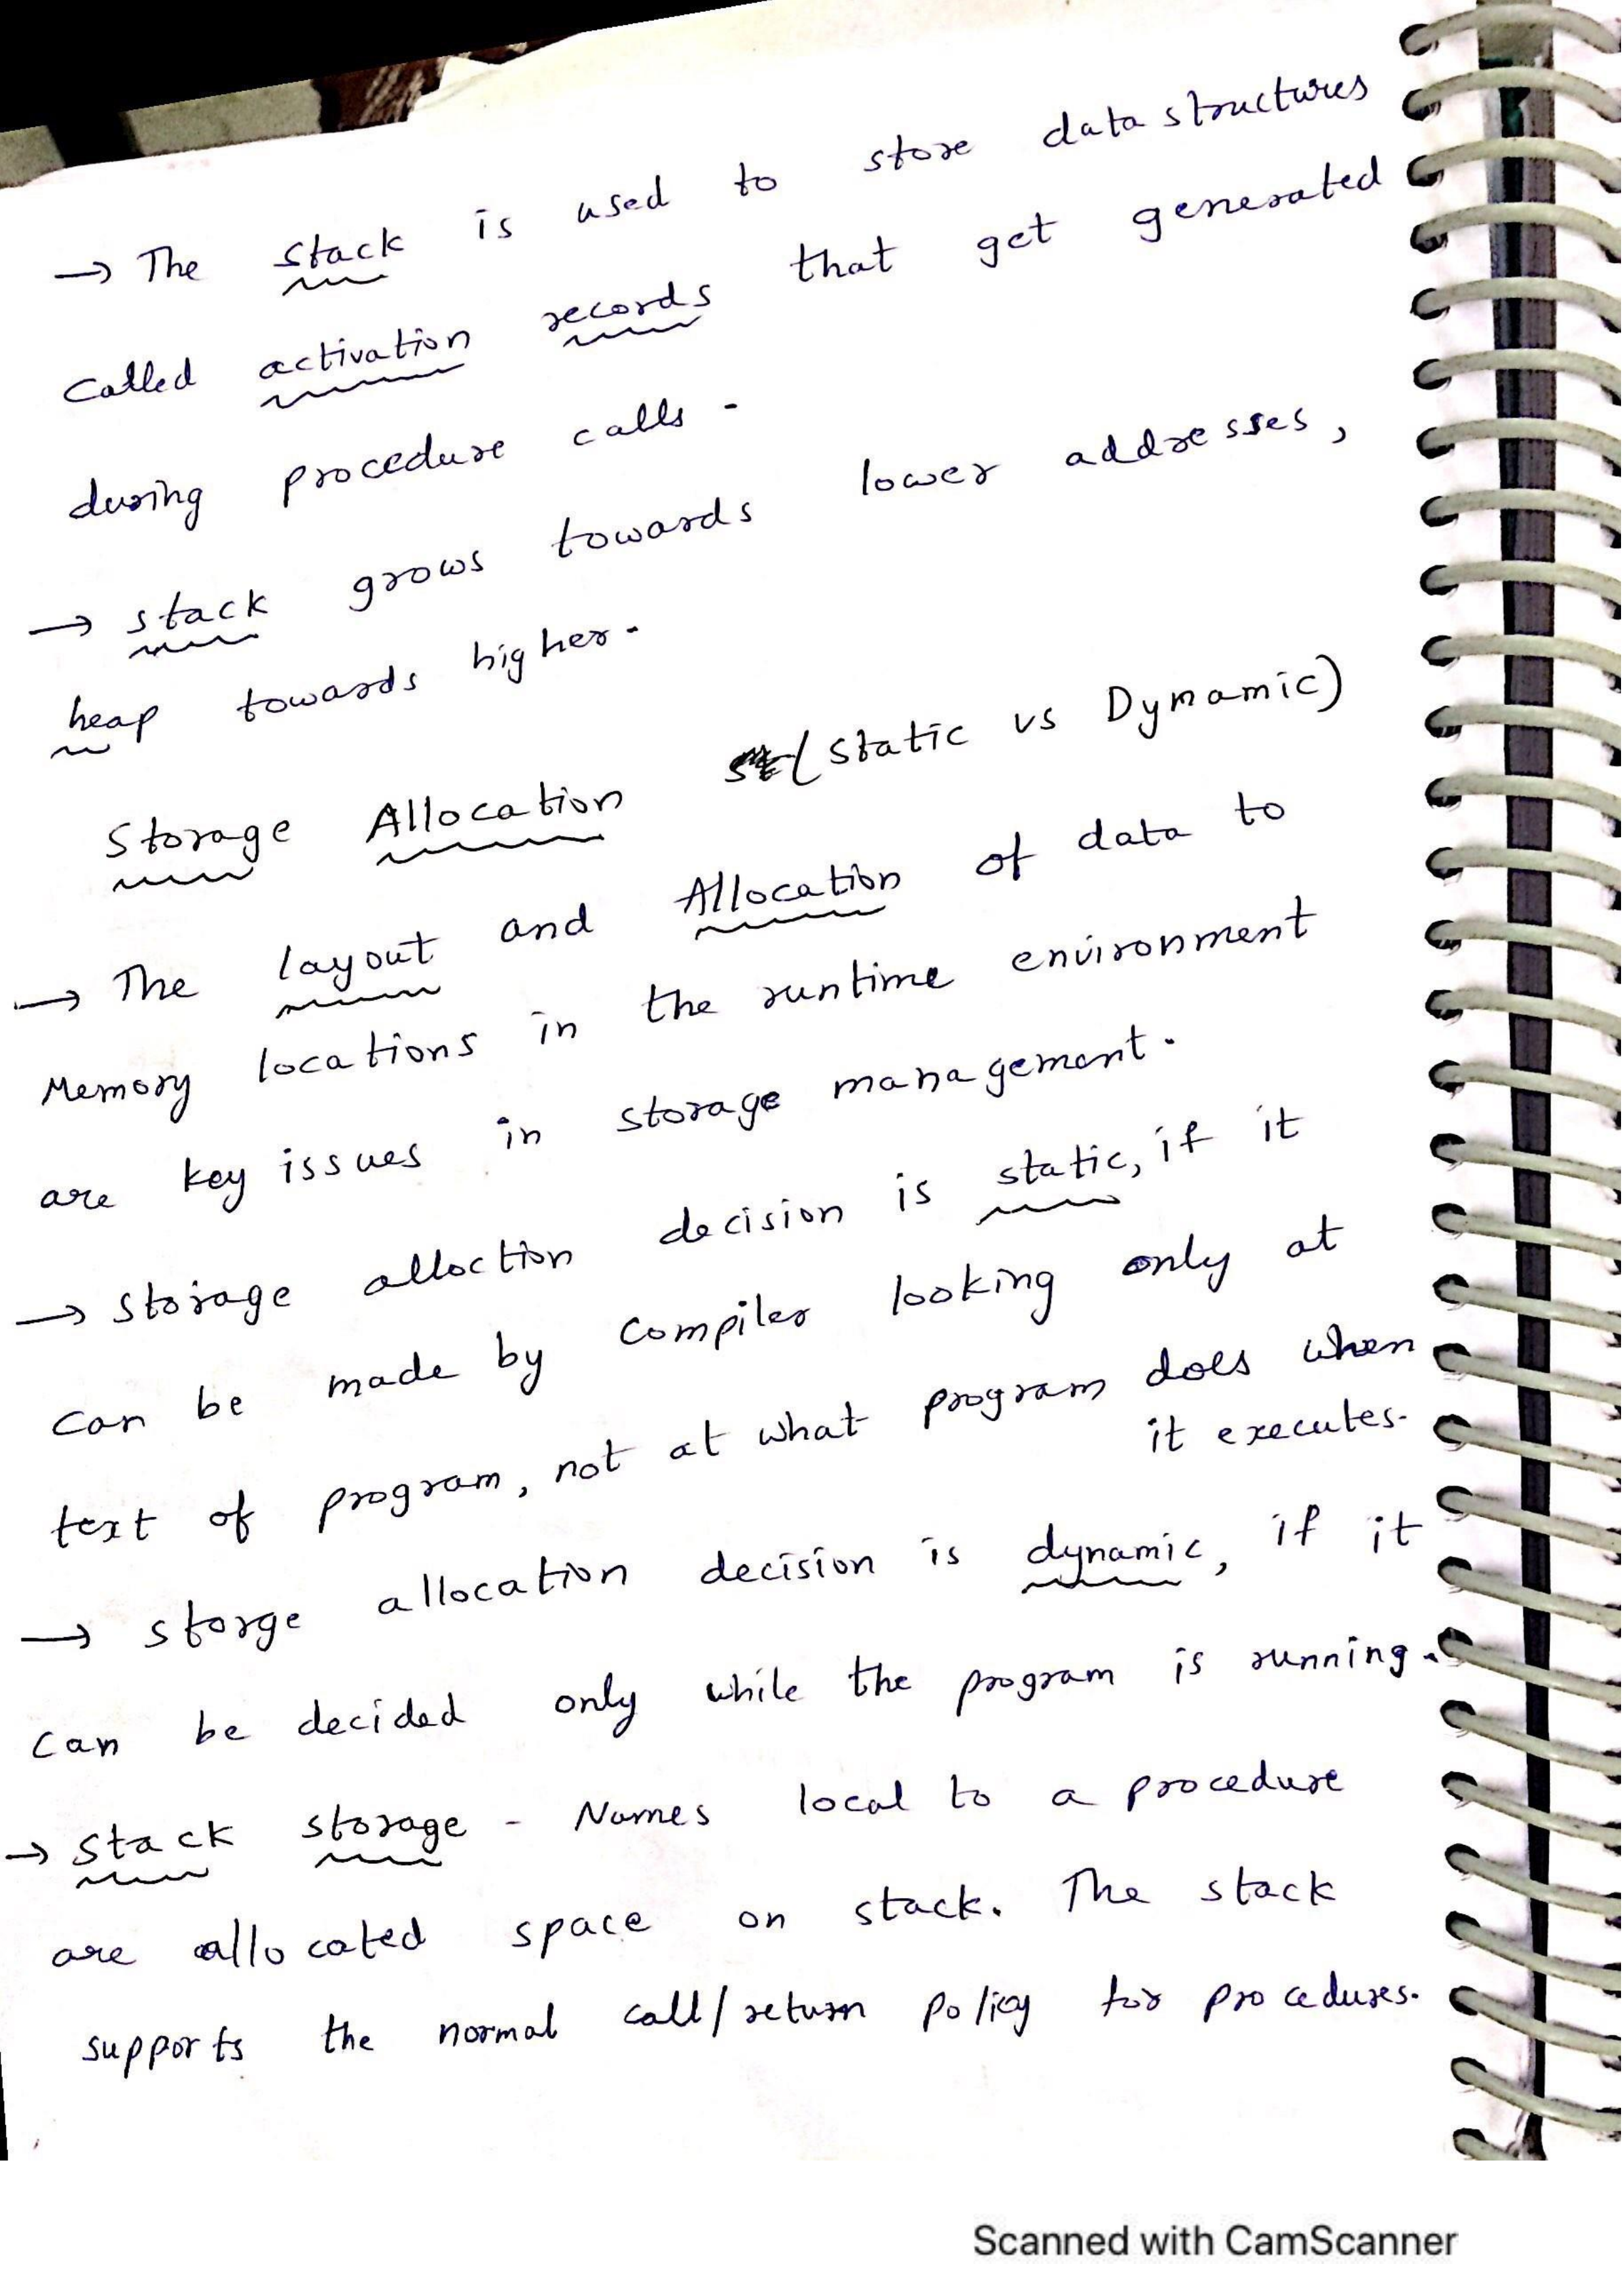 → The stack is used to store data structures
called activation records that get generated
during procedure calls.
→ stack grows towards lower addresses,
heap towards higher.
Storage Allocation (Static vs Dynamic)
→ The layout and Allocation of data to
Memory locations in the runtime environment
are key issues in storage management.
→ Storage alloction decision is static, if it
can be made by compiler looking only at
text of program, not at what program does when
it executes.
→ storge allocation decision is dynamic, if it
can be decided only while the program is running.
→ stack storage - Names local to a procedure
are allocated space on stack. The stack
supports the normal call/return policy for procedures.
Scanned with CamScanner